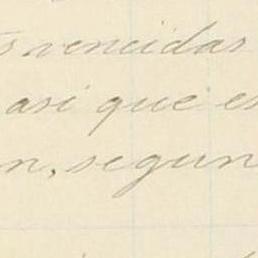 s vencidas
asi que es
n, segun